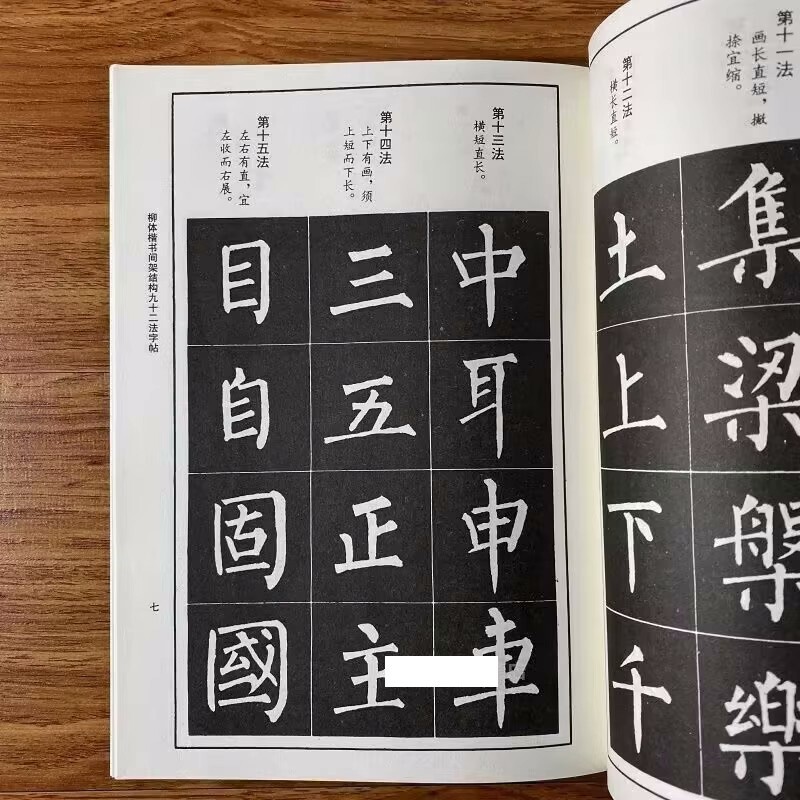 第十一法
画长直短，撇
捺宜缩。
集梁槃樂
第十二法
横长直短。
土上下千
第十三法
横短直长。
中耳申車
第十四法
上下有画，须
上短而下长。
三五正主
第十五法
左右有直，宜
左收而右展。
目自固國
柳体楷书间架结构九十二法字帖
七